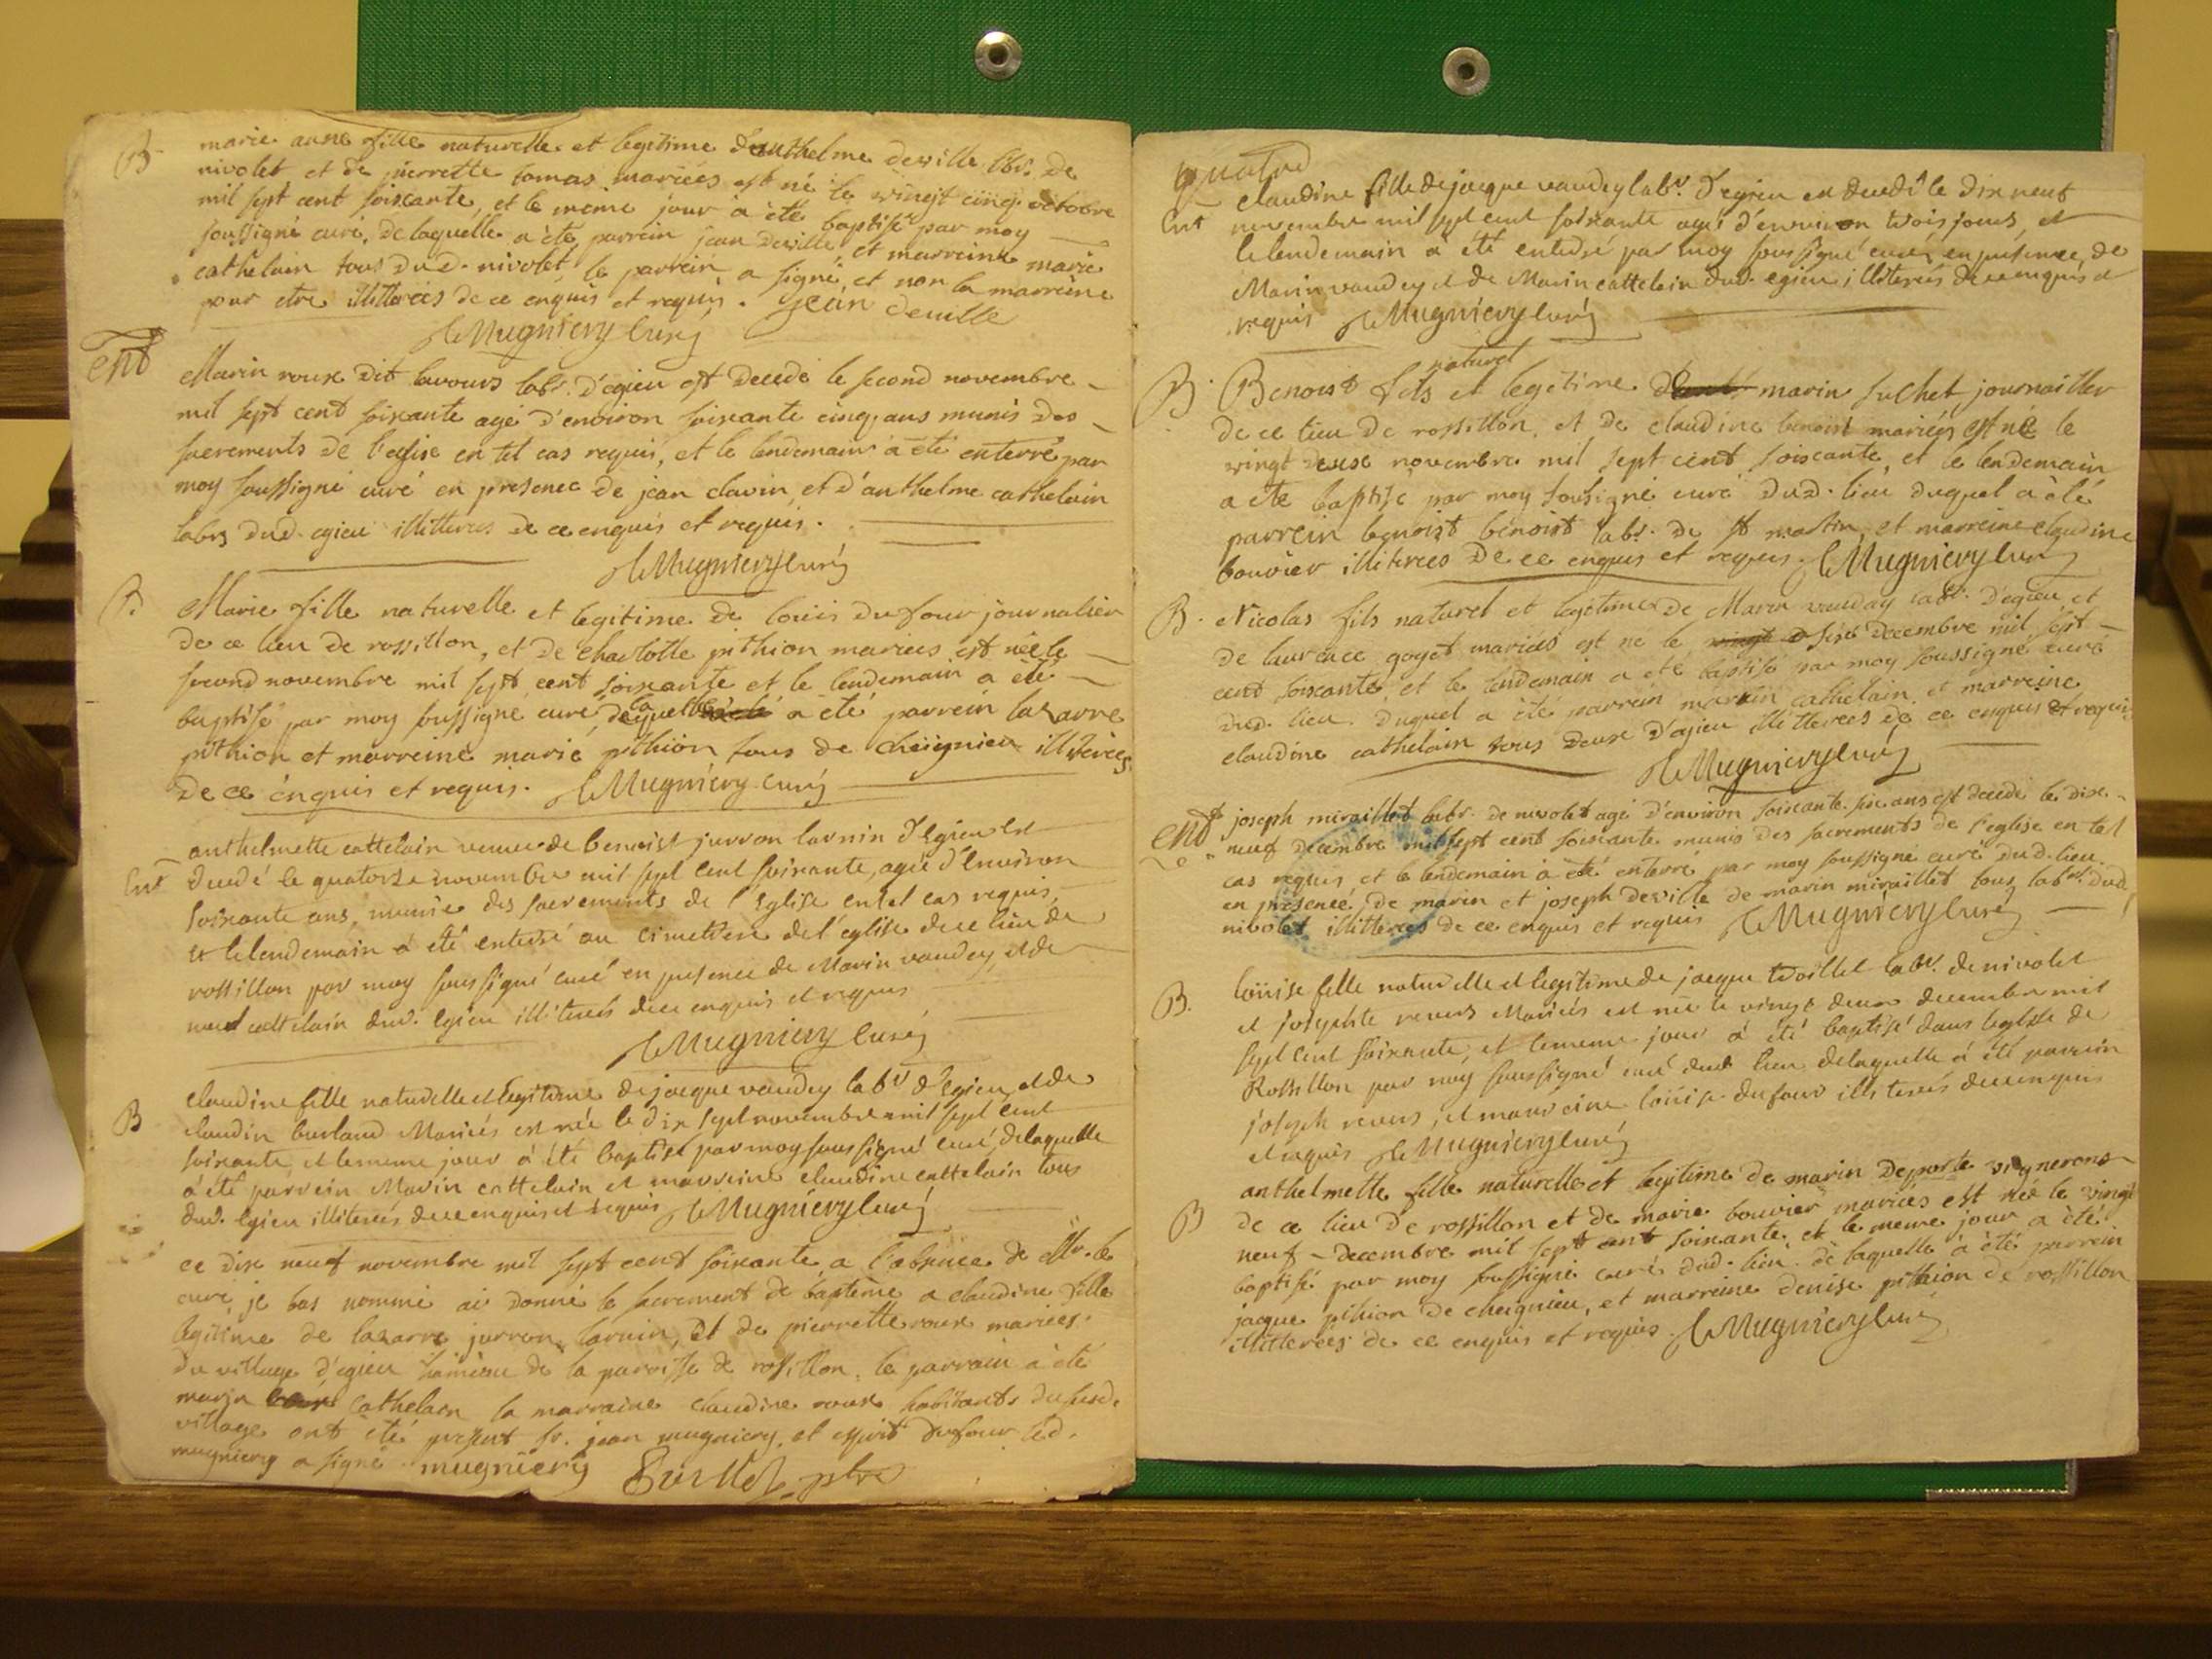 B
marie anne fille naturelle et legitime d'anthelme deville lbr. de
nivolet et de pierrette tomas mariées est né le vingt cinq octobre
mil sept cent soixante, et le meme jour a été baptisé par moy
soussigné curé, de laquelle a été parrein jean deville et marreine marie
cathelain tous dud. nivolet le parrein a signé, et non la marreine
pour etre illitterées de ce enquis et requis. Jean deuille
Mugniery curé
ent
Marin roux dit lavours labr. d'egieu est decedé le second novembre
mil sept cent soixante agé d'environ soixante cinq ans munis des
sacrements de l'eglise en tel cas requis, et le lendemain a été enterré par
moy soussigné curé en presence de jean clavin et d'anthelme cathelain
labrs dud. egieu illitterees de ce enquis et requis.
Mugniery curé
B.
Marie fille naturelle et legitime de louis dufour journalier
de ce lieu de rossillon, et de charlotte pithion mariées est née le
second novembre mil sept cent soixante et le lendemain a été
baptisé par moy soussigné curé, de laquelle a été parrein lazarre
pithion et marreine marie pithion tous de cheignieu illiterées
de ce enquis et requis. Mugniery curé
Ent
anthelmette cattelain veuve de benoist jurron larnin d'Egieu est
decedé le quatorze novembre mil sept cent soixante, agée d'environ
soixante ans, munie des sacrements de l'Eglise en tel cas requis,
et le lendemain a été enterré au cimettiere de l'église de ce lieu de
rossillon par moy soussigné curé en presence de Marin vaudey, et de
cattelain dud. Egieu illiterés de ce enquis et requis
Mugniery curé
B
claudine fille naturelle et legitime de jacque vaudey labr d'Egieu, et de
claudin burland Mariés est née le dix sept novembre mil sept cent
soixante, et le meme jour a été baptisé par moy soussigné curé, de laquelle
a été parrein Marin cattelain et marreine claudine cattelain tous
dud. Egieu illiterés de ce enquis et requis Mugniery curé
ce dix neuf novembre mil sept cent soixante, a l'absence de Mr. le
curé je bas nommé ai donné le sacrement de baptème a claudine fille
legitime de lazarre jurron larnin, et de pierrette roux mariées.
du village d'egieu hameau de la paroisse de rossillon, le parrain a été
marin cathelaen la marraine claudine roux habitants du susd.
village ont été present sr. jean mugniery, et esprit dufour led.
mugniery a signé mugniery ptre
quatre
Ent
claudine fille de jacque vaudey labr. d'egieu est decedé le dix neuf
novembre mil sept cent soixante agé d'environ trois jours, et
le lendemain a été enterré par moy soussigné curé, en presence de
Marin vaudey et de Marin cattelain dud. egieu, illiterés de ce enquis et
requis Mugniery curé
B.
naturel
Benoist fils et legitime de marin suchet journallier
de ce lieu de rossillon, et de claudine benoist mariées est né le
vingt deux novembre mil sept cent soixante, et le lendemain
a été baptisé par moy soussigné curé dud. lieu duquel a été
parrein benoist benoist labr. de st martin, et marreine claudine
bouvier illiterées de ce enquis et requis. Mugniery curé
B.
Nicolas fils naturel et legitime de Marin vauday labr. d'egieu et
de laurence goyet mariées est né le sixe decembre mil sept
cent soixante, et le lendemain a été baptisé par moy soussigné curé
dud. lieu. duquel a été parrein marin cathelain et marreine
claudine cathelain tous deux d'egieu illitterees de ce enquis et requis
Mugniery curé
ent
joseph miraillet labr. de nivolet agé d'environ soixante six ans est decedé le dix
neuf decembre mil sept cent soixante munis des sacrements de l'eglise en tel
cas requis et le lendemain a été enterré par moy soussigné curé dud. lieu.
en presence, de marin et joseph deville de marin miraillet tous labrs. dud.
nivolet illitterees de ce enquis et requis Mugniery curé
B.
loüise fille naturelle et legitime de jacque troillet labr. de nivolet
et josephte revers Mariés est née le vingt deux decembre mil
sept cent soixante, et le meme jour a été baptisé dans l'eglise de
Rossillon par moy soussigné curé dud. lieu delaquelle a été parrein
joseph revers, et marreine loüise dufour illiterés de ce enquis
et requis Mugniery curé
B
anthelmette fille naturelle et legitime de marin deporte vigneron
de ce lieu de rossillon et de marie bouvier mariées est née le vingt
neuf decembre mil sept cent soixante et le meme jour a été
baptisé par moy soussigné curé dud. lieu. de laquelle a été parrein
jacque pihion de cheignieu, et marreine denise pithion de rossillon
illitterées de ce enquis et requis. Mugniery curé